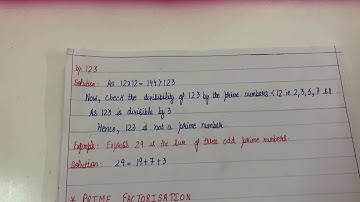 b) 123
Solution: As 12x12 = 144 > 123
Now, check the divisibility of 123 by the prime numbers < 12 i.e 2, 3, 5, 7 &
As 123 is divisible by 3
Hence, 123 is not a prime number.
Example: Express 29 as the sum of three odd prime numbers.
Solution: 29 = 19 + 7 + 3
* PRIME FACTORISATION